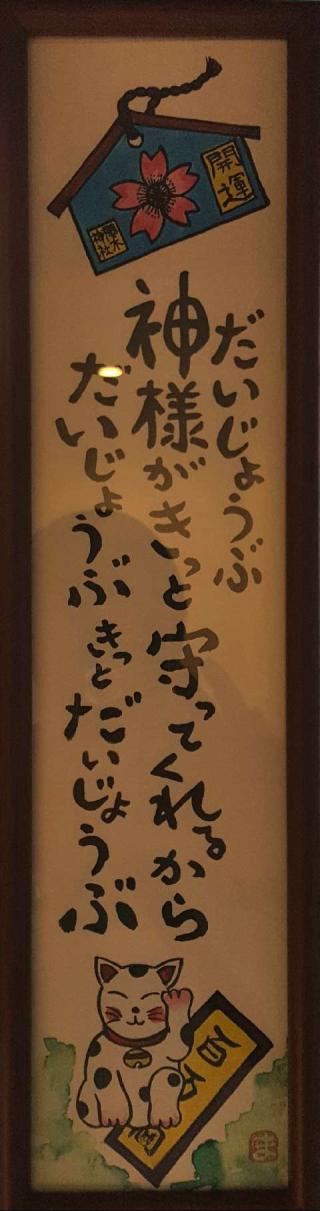 開運
だいじょうぶ
神様がきっと守ってくれるから
だいじょうぶ きっと だいじょうぶ